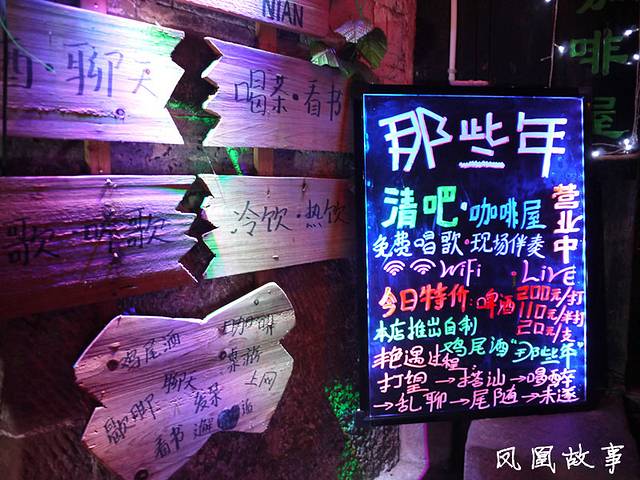 NIAN
聊天
喝茶·看书
冷饮·热饮
歌·听歌
鸡尾酒
聊天
上网
歇脚
发呆
看书
咖啡屋
那些年
清吧·咖啡屋
营业中
免费唱歌·现场伴奏
WiFi·LiVE
今日特价:啤酒 200元/打
110元/半打
20元/支
本店推出自制
鸡尾酒“那些年”
艳遇过程
打望→搭讪→喝醉
→乱聊→尾随→未遂
凤凰故事